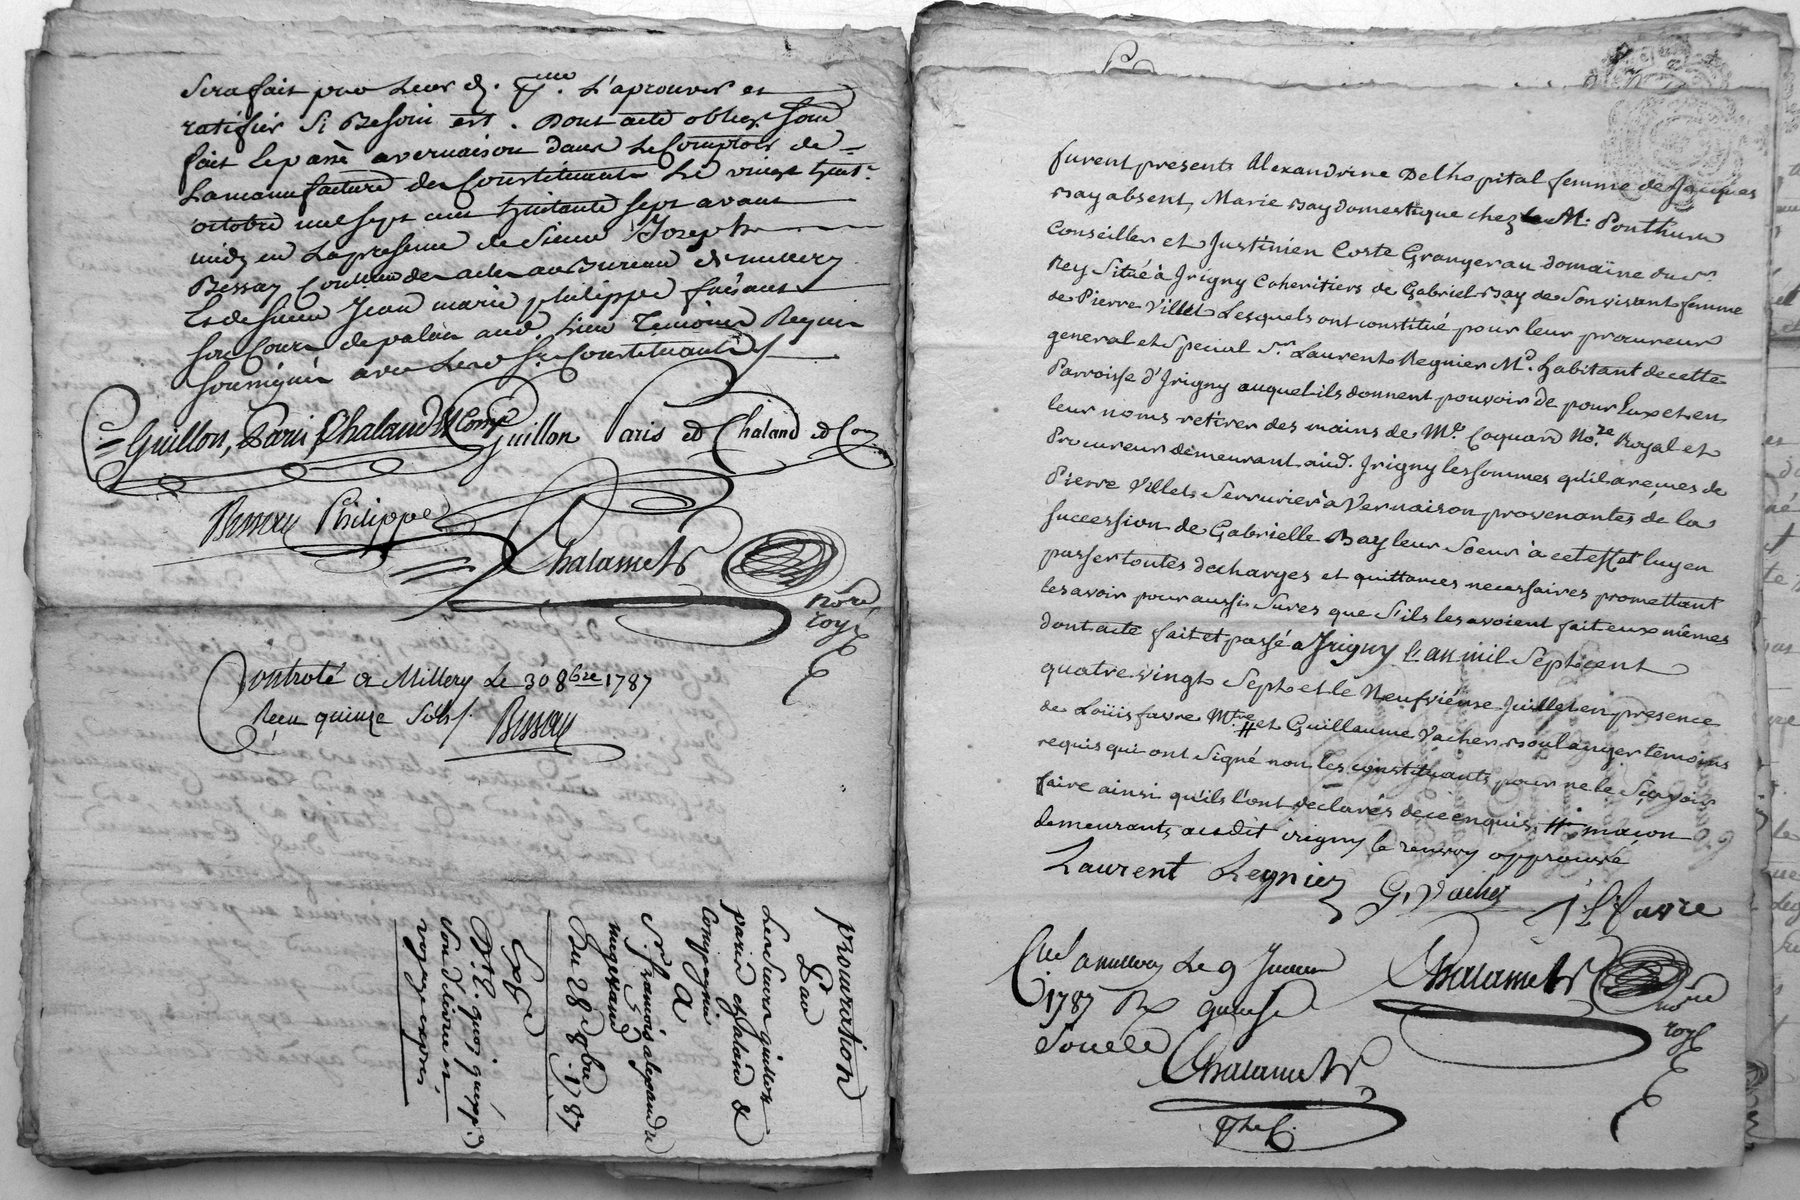 sera fait par leur d. l'aprouver et
ratifier si Besoin est. Dont acte oblig. soum
fait le passé a vernaison dans le Comptoir de
la manufacture des Constituants le vingt huit
octobre mil sept cent huitante sept avant
midy en la presence de Sieur Joseph
Bessay Commis des actes au Bureau de millery
et de sieur Jean marie philippe faisant
son Cours de palais aud. lieu Temoins Requis
soussignés avec lesd. Srs Constituants
Guillon, Paris, Chaland & Compe Guillon Paris et Chaland et Com
Bessay Philippe
Chalamel
nore
royl
Controlé a Millery Le 30 8bre 1787
Reçu quinze sols Bessay
procuration
Par
Les Sieurs guillon
paris chaland &
Compagnie
A
Sr. françois alexandre
Du 28 8bre 1787
Expe
furent presents Alexandrine Delhopital femme de Jacques
Bay absent, Marie Bay domestique chez le M. Ponthun
Conseiller et Justinien Coste Granger au domaine du Sr.
Rey Situé à Jrigny Coheritiers de Gabriel Bay de Son vivant femme
de Pierre Villet Lesquels ont constitué pour leur procureur
general et Special Sr. Laurent Regnier Md. habitant de cette
Parroisse d'Jrigny auquel ils donnent pouvoir de pour Eux et en
leur noms retirer des mains de Me. Coquard Nore. Royal et
Procureur demeurant aud. Jrigny les sommes qu'il a reçues de
Pierre Villet Serrurier à Vernaison provenantes de la
succession de Gabrielle Bay leur Soeur à cet effet luy en
passer toutes decharges et quittances necessaires promettant
les avoir pour aussi Sures que S'ils les avoient fait eux mêmes
dont acte fait et passé a Jrigny l'an mil Sept cent
quatre vingt Sept et le Neufvième Juillet en presence
de Loüis favre Mtre # et Guillaume Vacher Boulanger temoins
requis qui ont Signé non les constituants pour ne le Sçavoir
faire ainsi qu'ils l'ont declarés de ce enquis. # maçon
demeurants audit irigny le renvoy approuvé
Laurent Regnier G. Vacher L. favre
Chalamel
nore
royl
a millery Le 9 Juillet
1787 Rx quinse
Souls
Chalamel